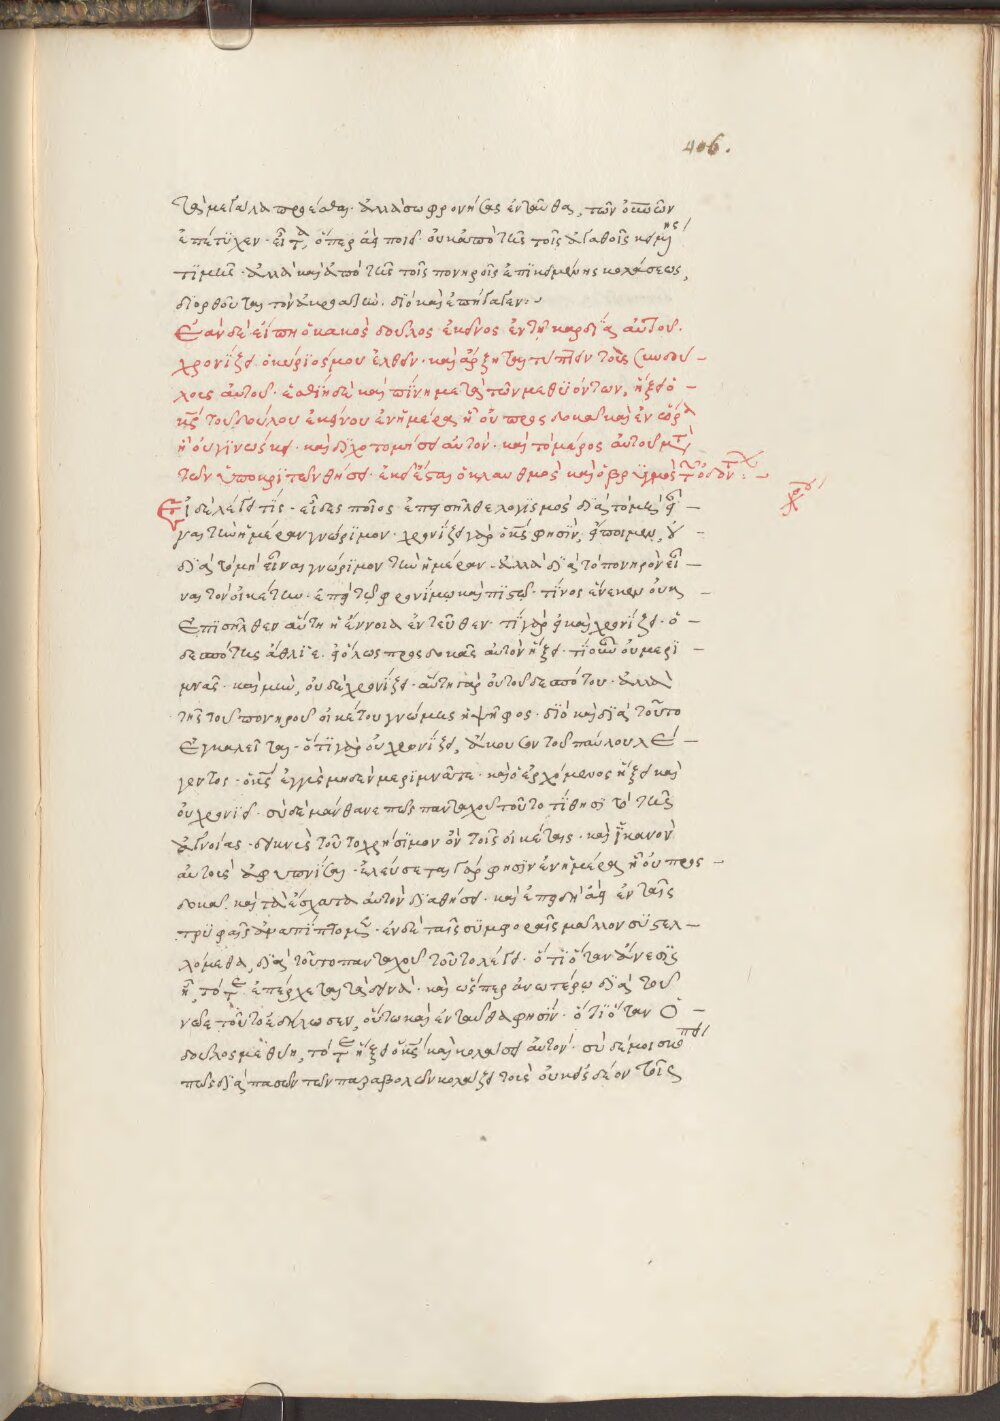 406.
τὰ μεγάλα προέσθαι. ἀλλὰ σωφρονήσας ἐνταῦθα, τῶν ὁμοίων
ἐπέτυχεν. εἶτα, ὅπερ ἀεὶ ποιεῖ. οὐκ ἀπὸ τῆς τοῖς ἀγαθοῖς κειμένης
τιμῆς. ἀλλὰ καὶ ἀπὸ τῆς τοῖς πονηροῖς ἐπικειμένης κολάσεως,
διορθοῦται τὸν ἀκροατήν. διὸ καὶ ἐπήγαγεν:
Ἐὰν δὲ εἴπῃ ὁ κακὸς δοῦλος ἐκεῖνος ἐν τῇ καρδίᾳ αὐτοῦ.
χρονίζει ὁ κύριός μου ἐλθεῖν. καὶ ἄρξηται τύπτειν τοὺς συνδού-
λους αὐτοῦ. ἐσθίῃ δὲ καὶ πίνῃ μετὰ τῶν μεθυόντων, ἥξει ὁ
κς τοῦ δούλου ἐκείνου ἐν ἡμέρᾳ ᾗ οὐ προσδοκᾷ καὶ ἐν ὥρᾳ
ᾗ οὐ γινώσκει. καὶ διχοτομήσει αὐτόν. καὶ τὸ μέρος αὐτοῦ μετὰ
τῶν ὑποκριτῶν θήσει. ἐκεῖ ἔσται ὁ κλαυθμὸς καὶ ὁ βρυγμὸς τῶν ὀδόντων:
Εἰ δὲ λέγει τίς. εἶδες ποῖος ἐπεισῆλθε λογισμὸς διὰ τὸ μὴ εἶ-
ναι τὴν ἡμέραν γνώριμον. χρονίζει γὰρ ὁ κς φησίν, εἴποιμεν,
διὰ τὸ μὴ εἶναι γνώριμον τὴν ἡμέραν. ἀλλὰ διὰ τὸ πονηρὸν εἶ-
ναι τὸν οἰκέτην. ἐπεὶ τῷ φρονίμῳ καὶ πιστῷ. τίνος ἕνεκεν οὐκ
ἐπεισῆλθεν αὕτη ἡ ἔννοια ἐντεῦθεν. τί γὰρ εἰ καὶ χρονίζει. ὁ
δεσπότης ἄθλιε. εἰ ὅλως προσδοκᾷς αὐτὸν ἥξειν. τί οὖν οὐ μερι-
μνᾷς. καὶ μὴν, οὐδὲ χρονίζει. αὕτη γὰρ οὐ τοῦ δεσπότου. ἀλλὰ
τῆς τοῦ πονηροῦ οἰκέτου γνώμης ἡ ψῆφος. διὸ καὶ διὰ τοῦτο
ἐγκαλεῖται. ὅτι γὰρ οὐ χρονίζει, ἄκουσον τοῦ παύλου λέ-
γοντος. ὁ κς ἐγγὺς μηδὲν μεριμνᾶτε. καὶ ὁ ἐρχόμενος ἥξει καὶ
οὐ χρονιεῖ. σὺ δὲ μάνθανε πῶς πανταχοῦ τοῦτο τίθησι τὸ τῆς
ἀγνοίας. δεικνὺς τοῦτο χρήσιμον ὂν τοῖς οἰκέταις. καὶ ἱκανὸν
αὐτοὺς ἀφυπνίσαι. ἐλεύσεται γάρ φησιν ἐν ἡμέρᾳ ᾗ οὐ προσ-
δοκᾷ. καὶ τὰ ἔσχατα αὐτὸν διαθήσει. καὶ ἐπειδὴ ἀεὶ ἐν ταῖς
τρυφαῖς ἀναπίπτομεν. ἐν δὲ ταῖς συμφοραῖς μᾶλλον συστελ-
λόμεθα, διὰ τοῦτο πανταχοῦ τοῦτο λέγει. ὅτι ὅταν ἄνεσις
ᾖ, τότε ἐπέρχεται τὰ δεινά. καὶ ὥσπερ ἀνωτέρω διὰ τοῦ
νῶε τοῦτο ἐδήλωσεν, οὕτω καὶ ἐνταῦθα φησίν. ὅτι ὅταν ὁ
δοῦλος μεθύῃ, τότε ἥξει ὁ κς καὶ κολάσει αὐτόν. σὺ δέ μοι σκόπει
πῶς διὰ πασῶν τῶν παραβολῶν κολάζει τοὺς οὐκ εἰς δέον τοῖς